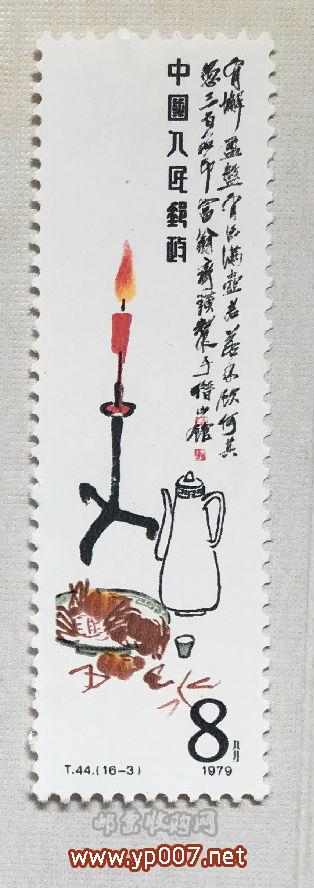 有蠏盈盤有酒滿壺君若不飲何其
愚三百石印富翁齊璜製于借山館
中國人民郵政
8分
T.44.(16-3)
1979
邮票收购网
www.yp007.net